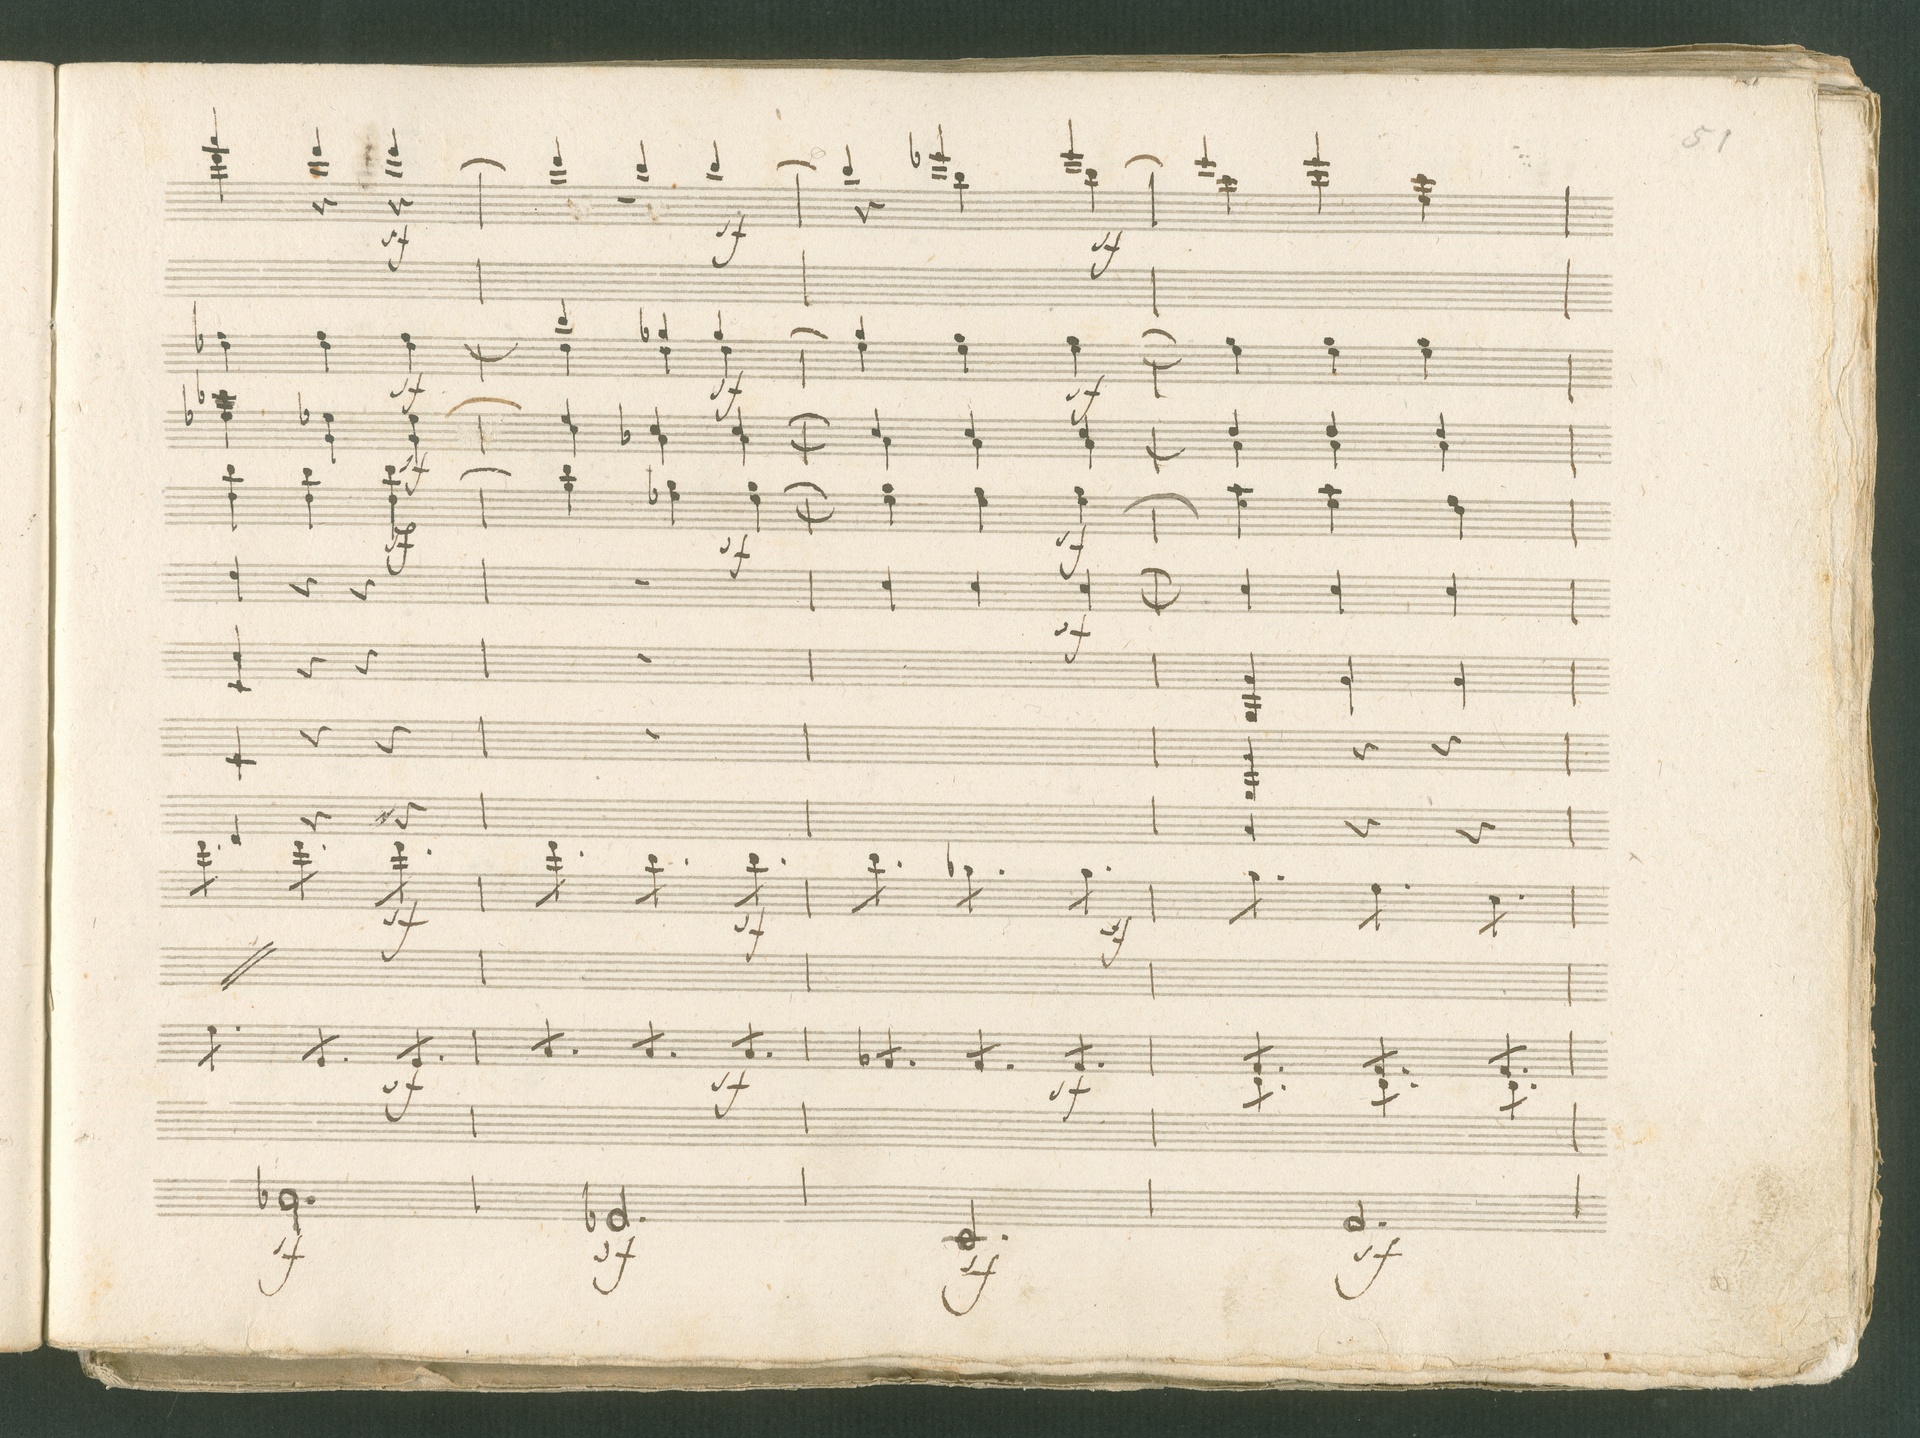 51
sf sf sf
sf sf sf
sf
sf sf sf
sf
sf sf sf
sf sf sf
sf sf sf sf